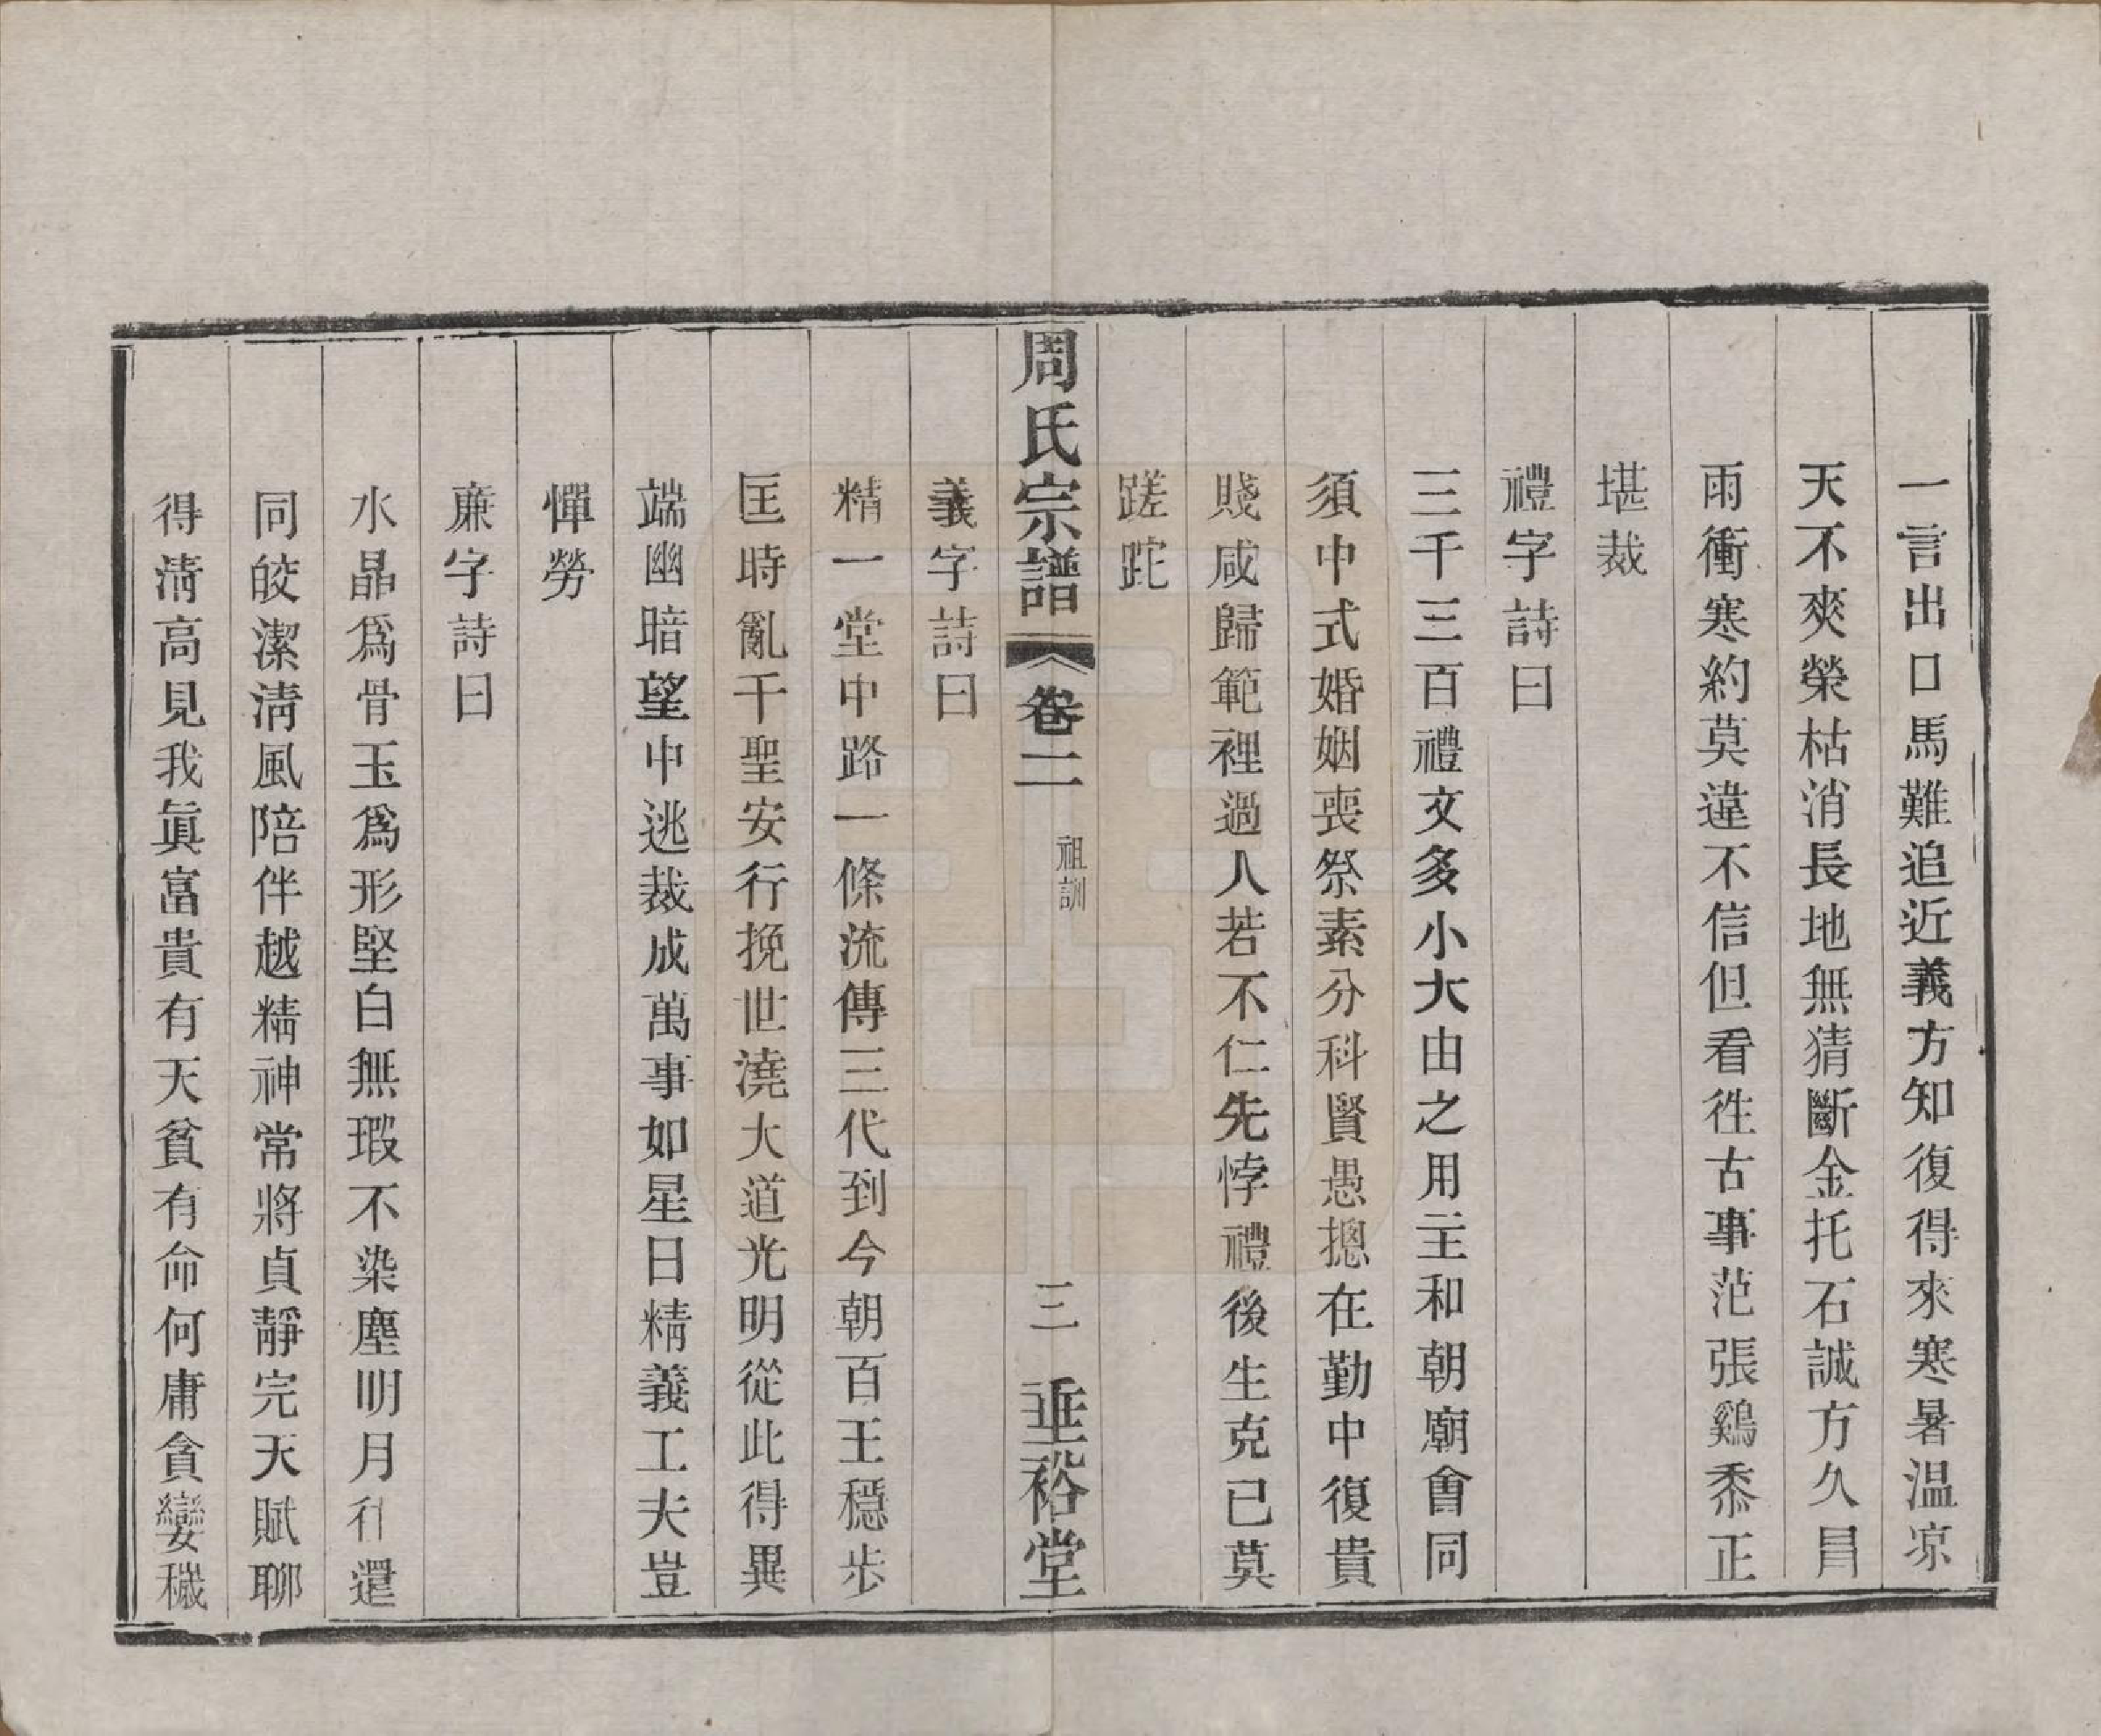 一言出口馬難追近義方知復得來寒暑温凉
天不爽榮枯消長地無猜斷金托石誠方久冒
雨衝寒約莫違不信但看徃古事范張鷄黍正
堪裁
禮字詩曰
三千三百禮文多小大由之用主和朝廟會同
須中式婚姻喪祭素分科賢愚摠在勤中復貴
賤咸歸範裡過人若不仁先悖禮後生克已莫
蹉跎
周氏宗譜
卷二
祖訓
三
垂裕堂
義字詩曰
精一堂中路一條流傳三代到今朝百王穩步
匡時亂千聖安行挽世澆大道光明從此得異
端幽暗望中逃裁成萬事如星日精義工夫豈
憚勞
廉字詩曰
水晶爲骨玉爲形堅白無瑕不染塵明月徃還
同皎潔淸風陪伴越精神常將貞靜完天賦聊
得淸高見我眞富貴有天貧有命何庸貪孌穢